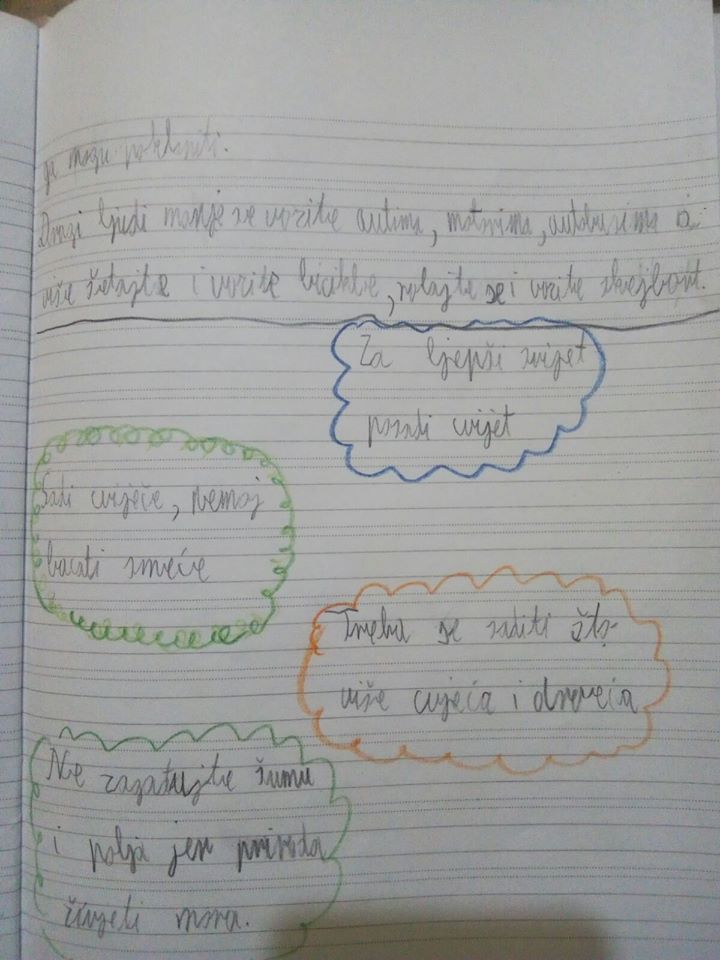 ga mogu pokloniti.
Dragi ljudi manje se vozite autima, motorima, autobusima a
više šetajte i vozite bicikle, rolajte se i vozite skejbort.
Za ljepši svijet
posadi cvijet
Sadi cvijeće, nemoj
bacati smeće
Treba se saditi što-
više cvjeća i drveća
Ne zagađujte šumu
i polja jer priroda
živjeti mora.